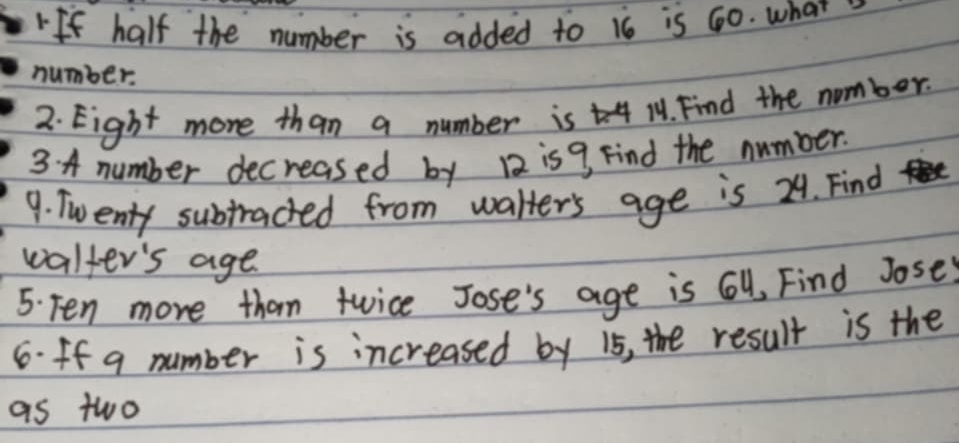 1. If half the number is added to 16 is 60. what
number.
2. Eight more than a number is 14. Find the number.
3. A number decreased by 12 is 9, Find the number.
4. Twenty subtracted from walter's age is 24. Find
walter's age.
5. Ten more than twice Jose's age is 64, Find Jose's
6. If a number is increased by 15, the result is the
as two